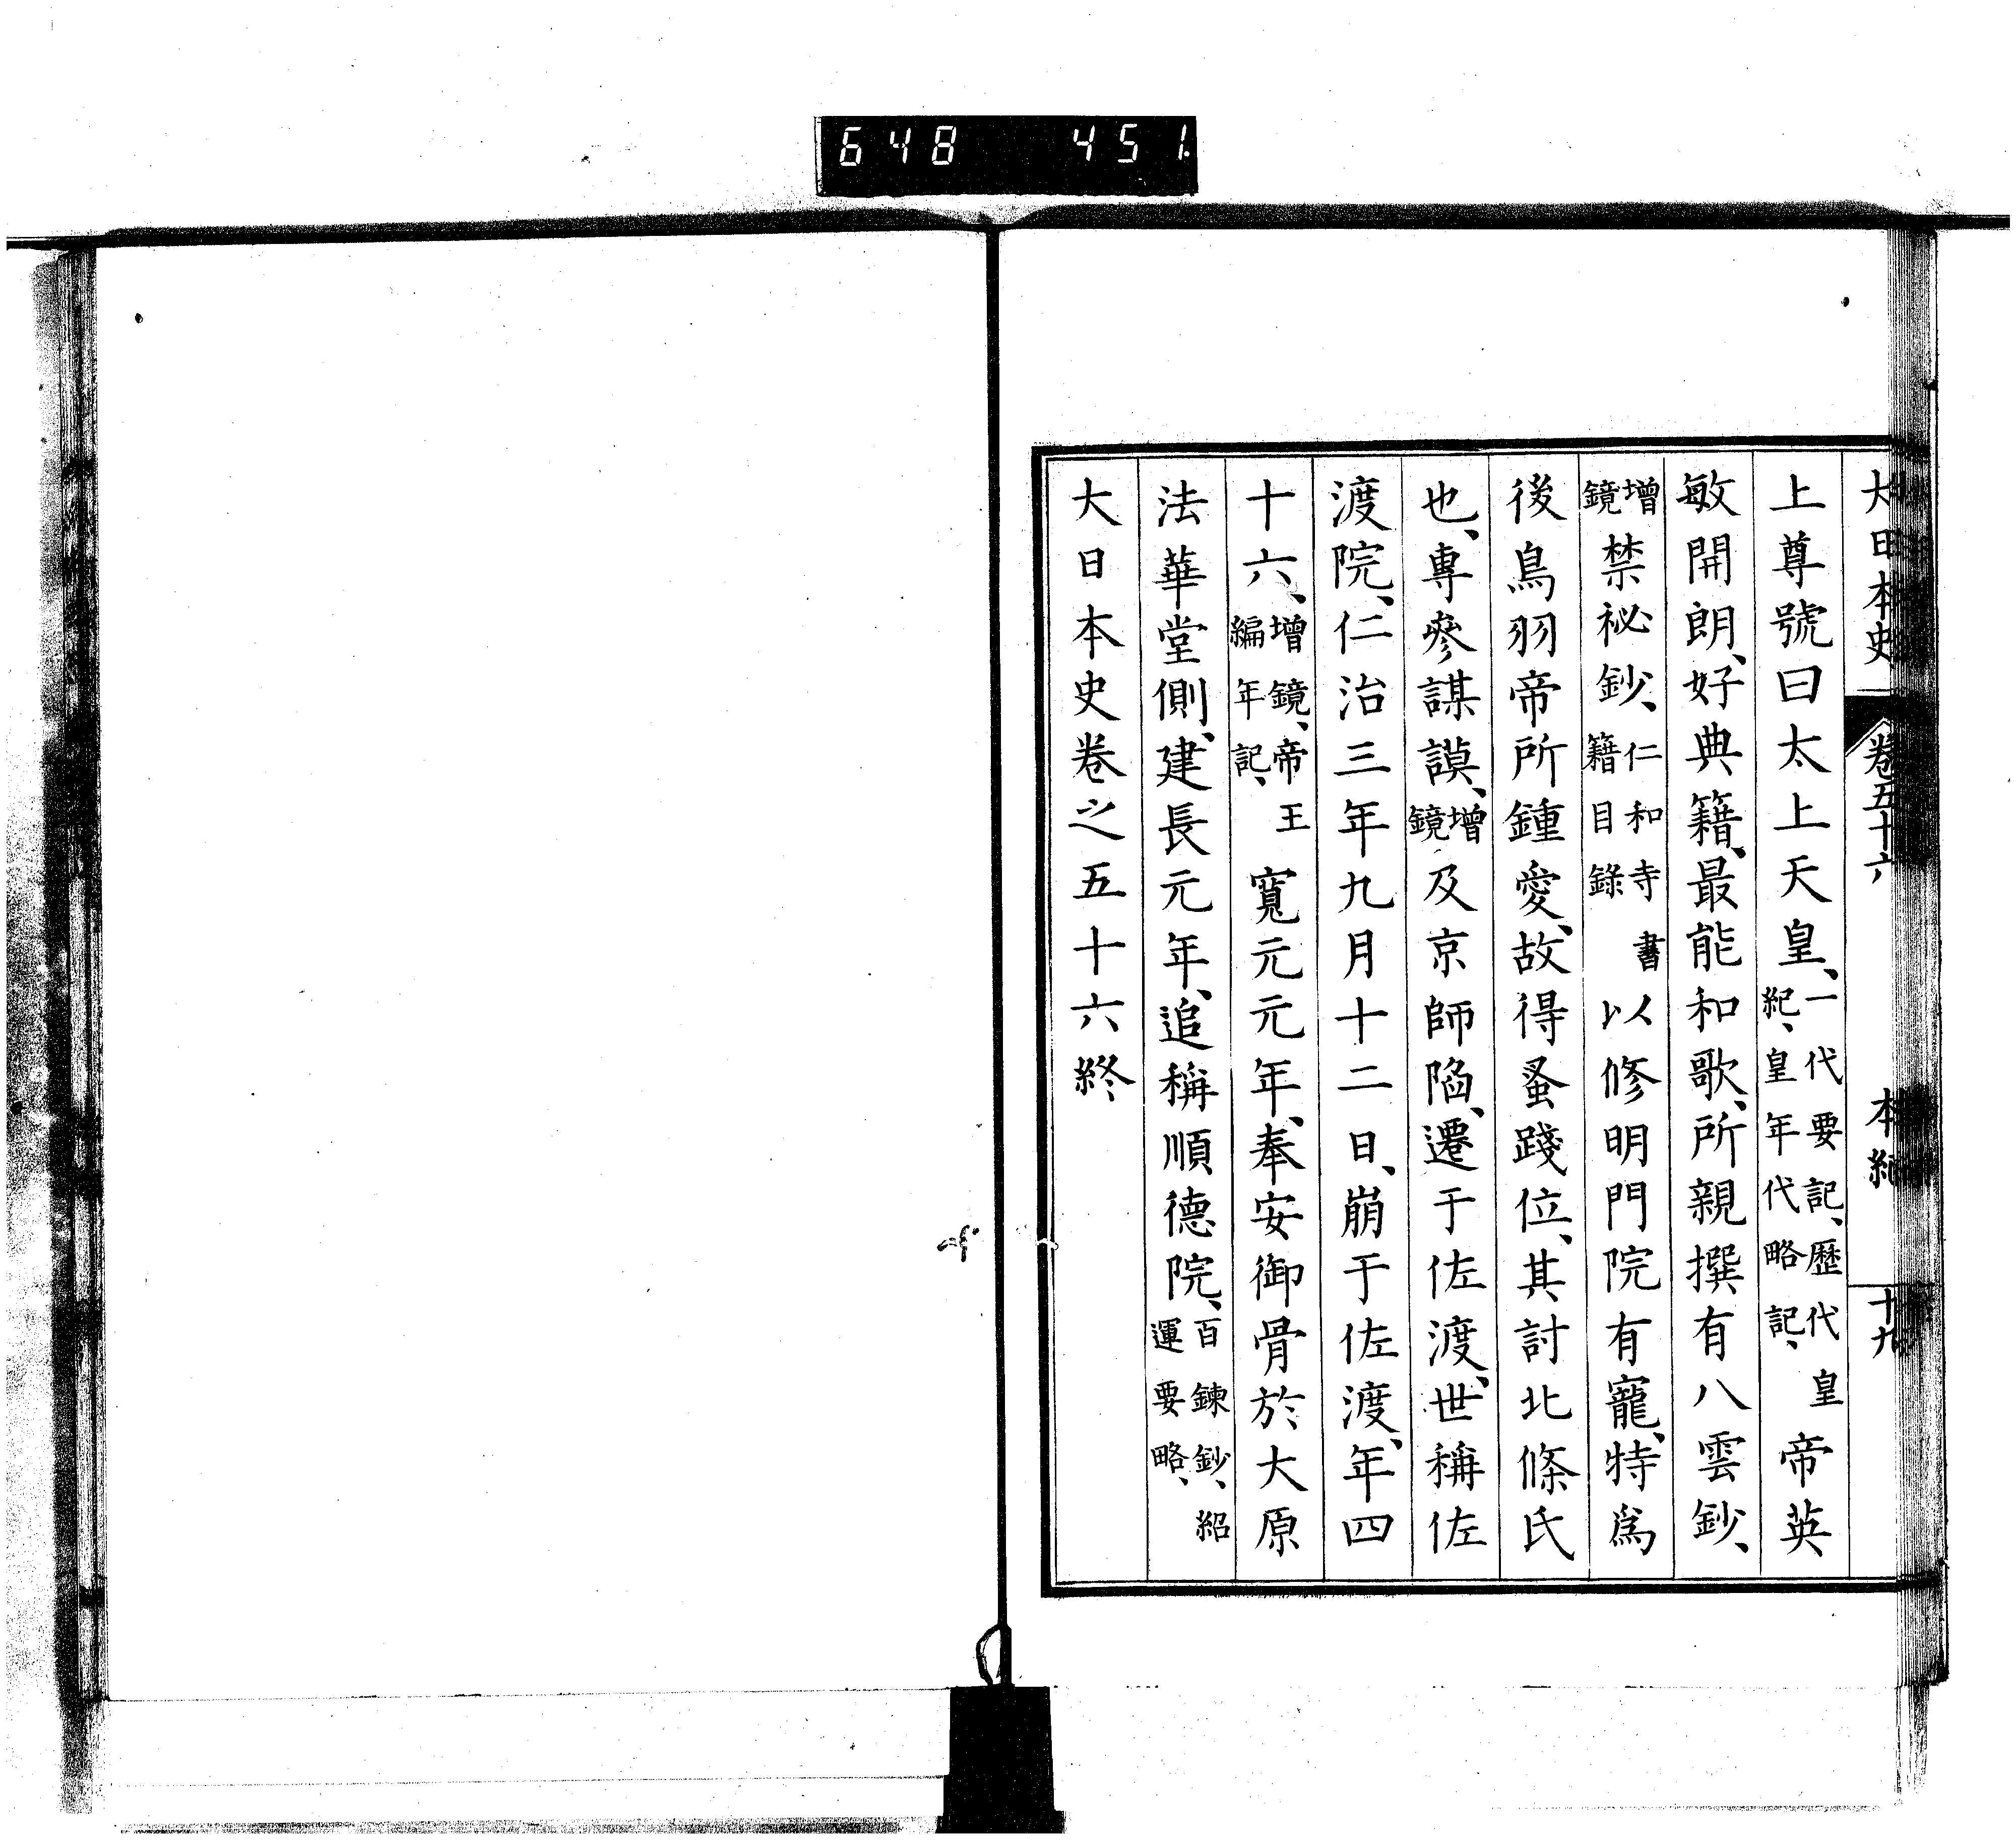 648 451
大日本史 卷五十六 本紀 十九
上尊號曰太上天皇、一代要記、歷代皇紀、皇年代略記、帝英
敏開朗、好典籍、最能和歌、所親撰有八雲鈔、
增鏡禁祕鈔、仁和寺書籍目錄以修明門院有寵、特爲
後鳥羽帝所鍾愛、故得蚤踐位、其討北條氏
也、專參謀謨、增鏡及京師陷、遷于佐渡、世稱佐
渡院、仁治三年九月十二日、崩于佐渡、年四
十六、增鏡、帝王編年記、寬元元年、奉安御骨於大原
法華堂側、建長元年、追稱順德院、百鍊鈔、紹運要略、
大日本史卷之五十六終、